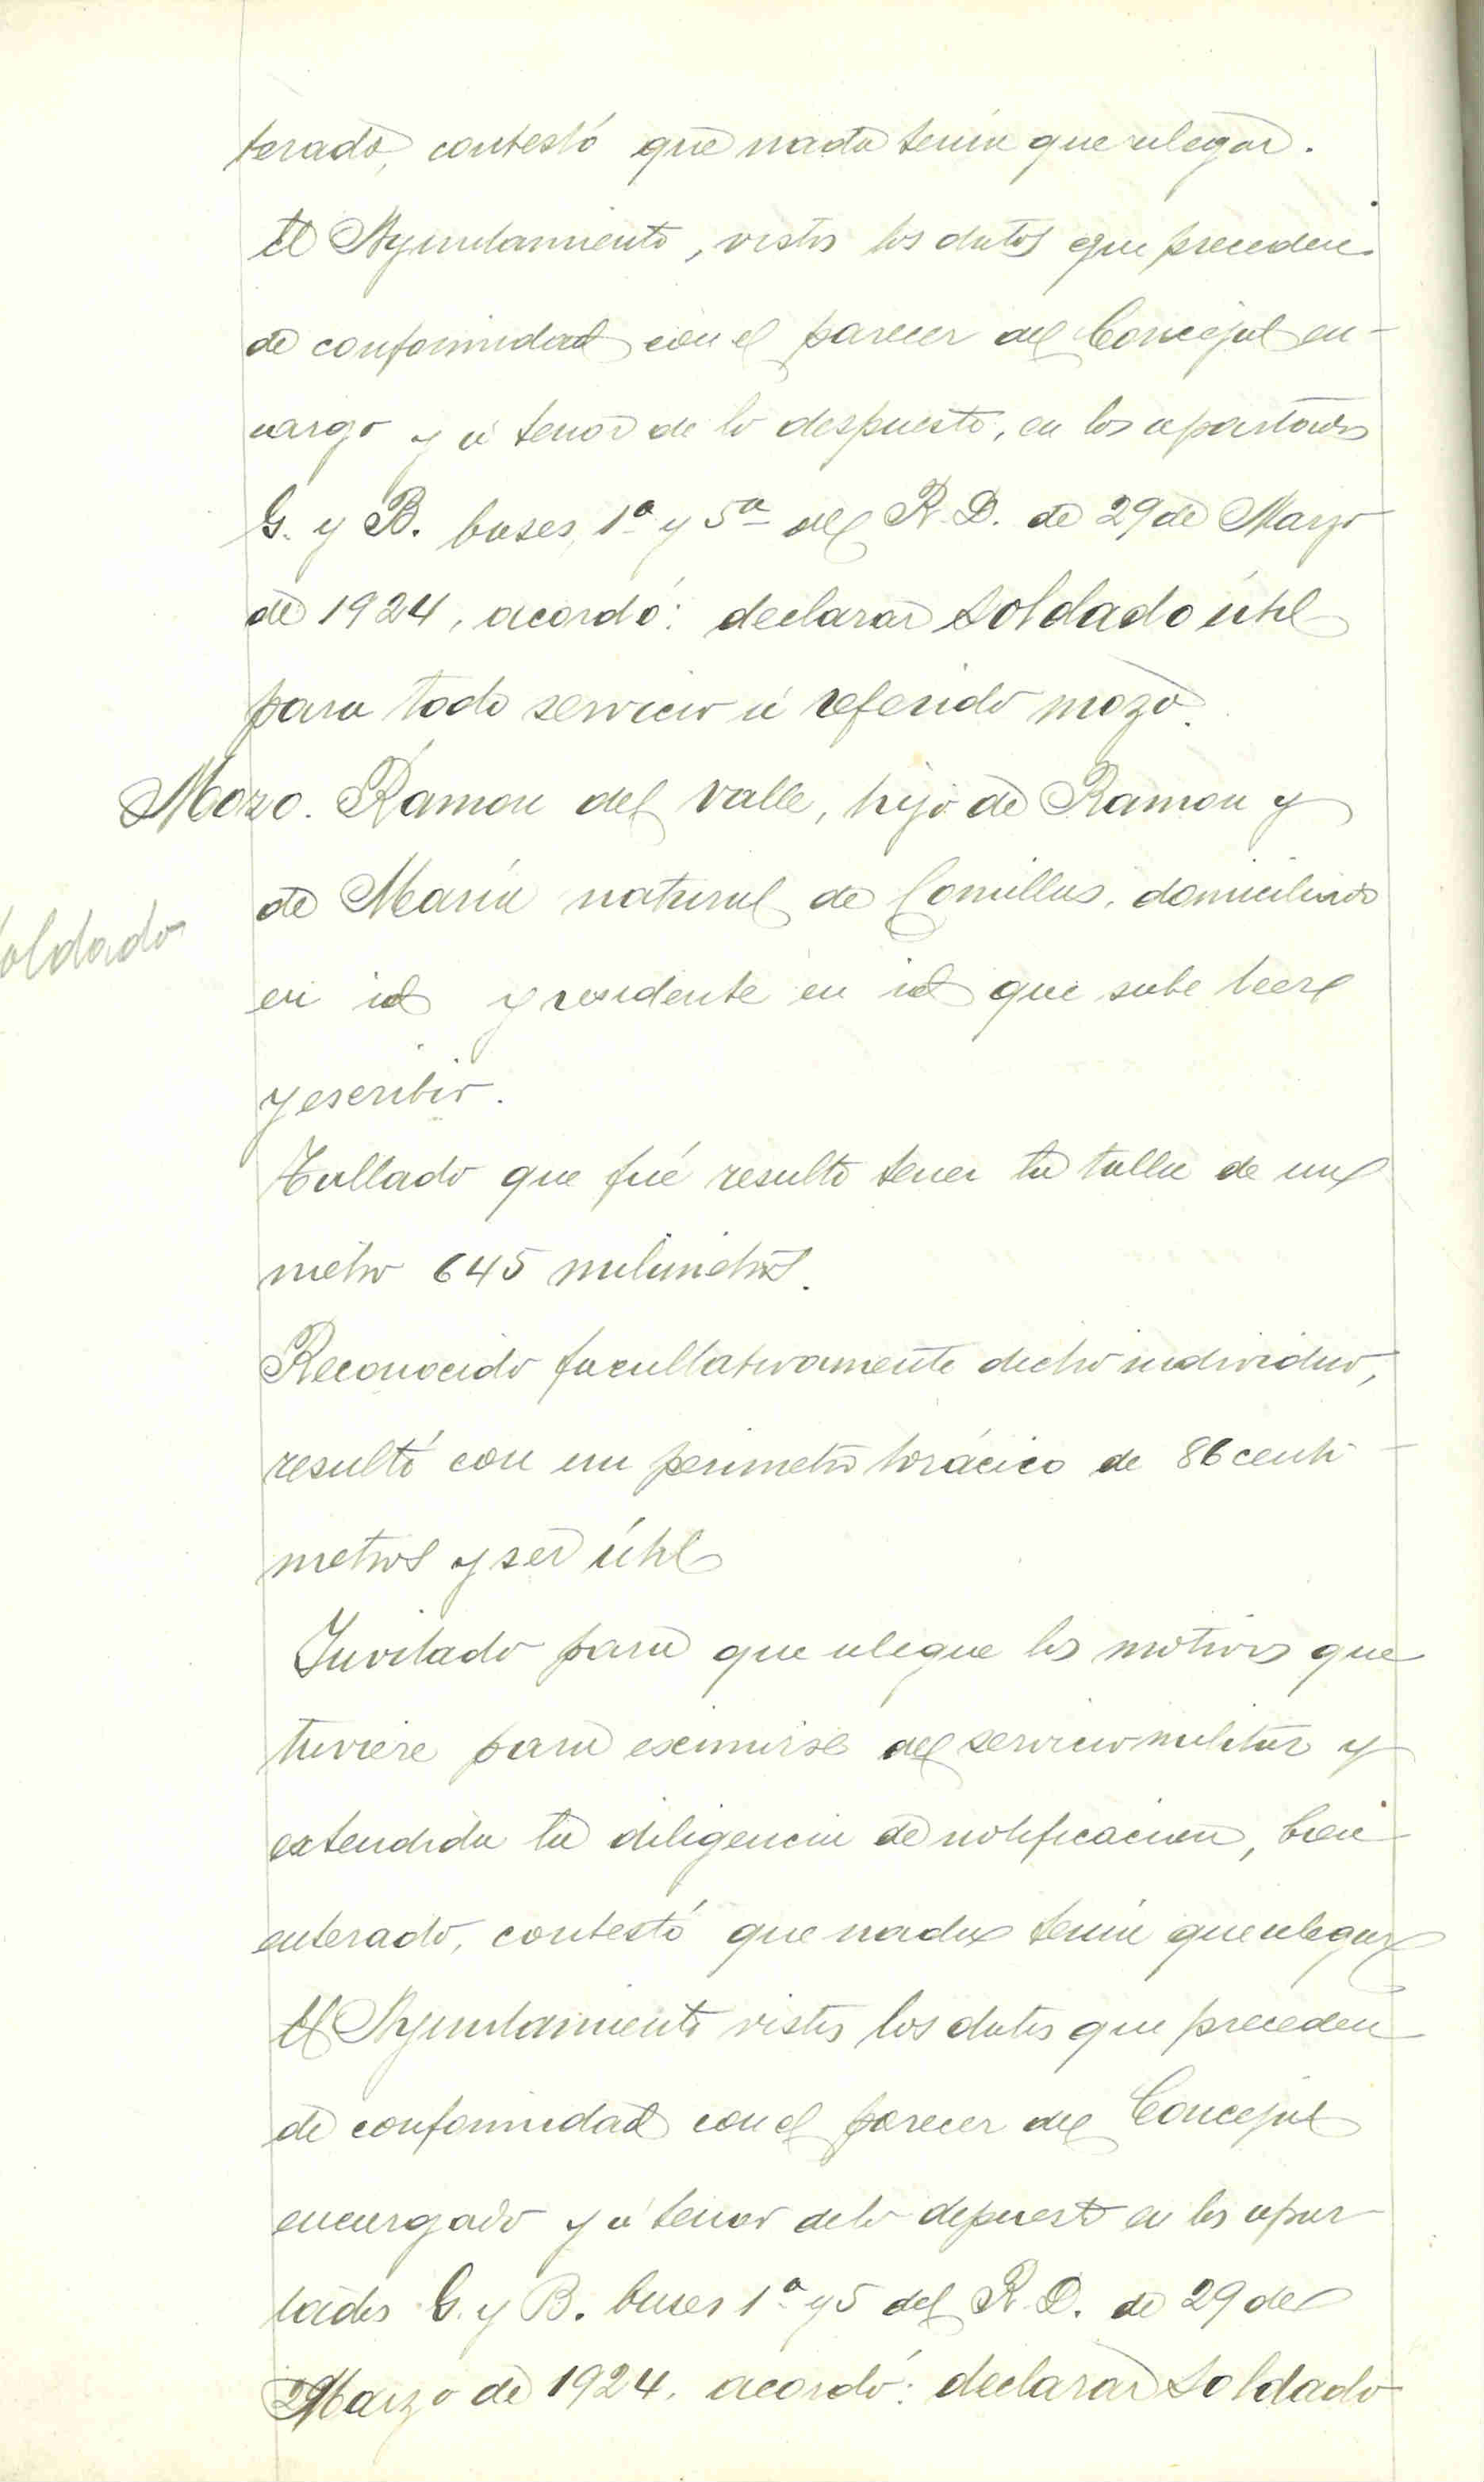 terado, contestó que nada tenía que alegar.
El Ayuntamiento, vistos los datos que preceden
de conformidad con el parecer del Concejal en-
cargo y á tenor de lo despuesto, en los apartados
G. y B. bases, 1ª y 5ª del R. D. de 29 de Marzo
de 1924, acordó: declarar soldado útil
para todo servicio á referido mozo.
Mozo. Ramon del Valle, hijo de Ramon y
de María natural de Comillas, domiciliado
oldado
en id y residente en id que sabe leer
y escribir.
Tallado que fué resulto tener la talla de un
metro 645 milimetros.
Reconocido facultativamente dicho individuo,
resultó con un perimetro torácico de 86 centi-
metros y ser útil
Invitado para que alegue los motivos que
tuviere para eximirse del servicio militar y
extendida la diligencia de notificacion, bien
enterado, contestó que nada tenía que alegar
El Ayuntamiento vistos los datos que preceden
de conformidad con el parecer del Concejal
encargado y á tenor de lo depuesto en los apar-
tados G. y B. bases 1ª y 5 del R. D. de 29 de
Marzo de 1924. acordó: declarar soldado